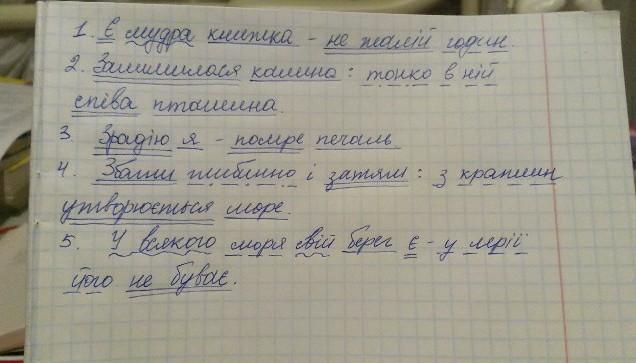 1. Є мудра книжка - не жалій годин.
2. Залишилася калина: тонко в ній
співа пташина.
3. Зрадію я - помре печаль
4. Збагни глибинно і затям: з краплин
утворюється море.
5. У всякого моря свій берег є - у мрії
його не буває.